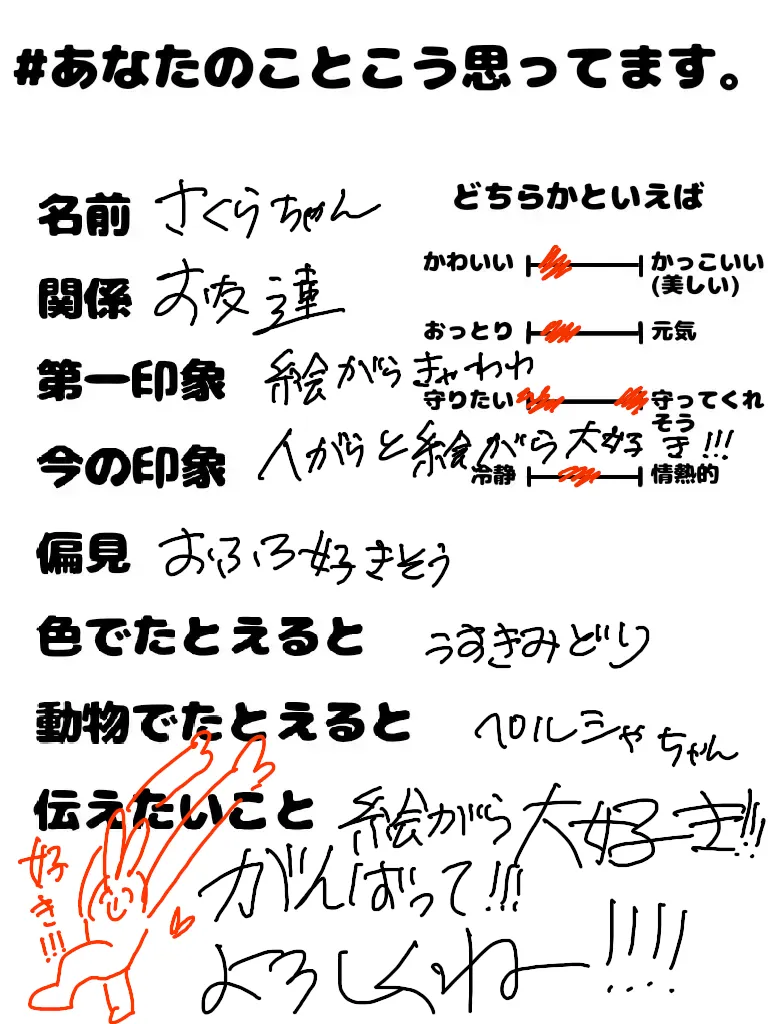 #あなたのことこう思ってます。
名前 さくらちゃん
関係 お友達
第一印象 絵がらきゃわわ
今の印象 人がらと絵がら大好き!!!
偏見 おふろ好きそう
色でたとえると うすきみどり
動物でたとえると ペルシャちゃん
伝えたいこと 絵がら大好き!!!
がんばって!!!
よろしくねー!!!!
好き!!!
どちらかといえば
かわいい かっこいい
(美しい)
おっとり 元気
守りたい 守ってくれ
そう
冷静 情熱的